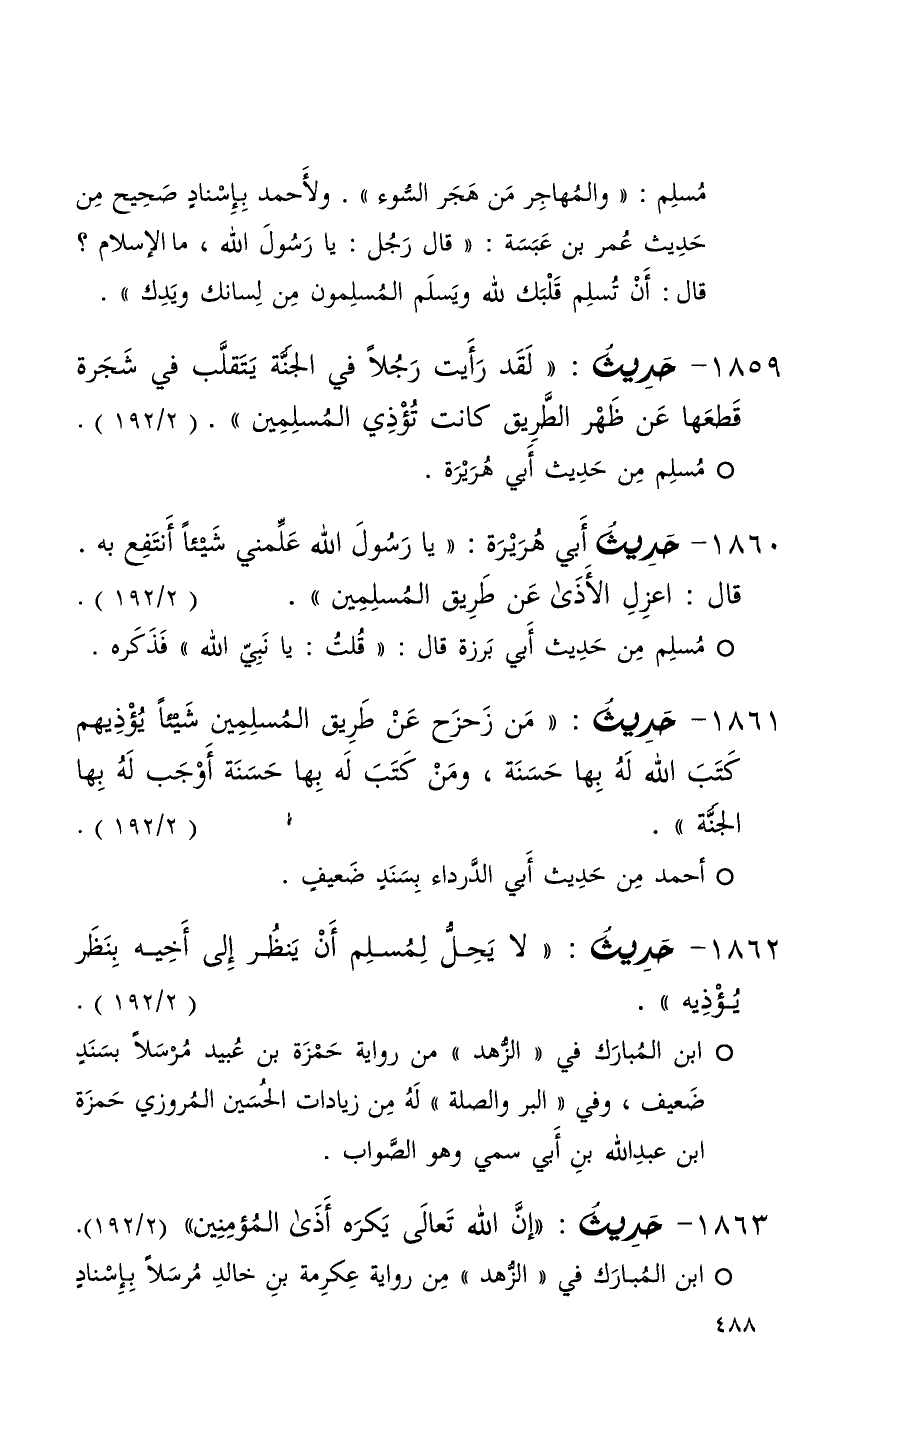 مُسلِم : « والمُهاجِر مَن هَجَر السُّوء » . ولأَحمد بِإِسْنادٍ صَحِيح مِن
حَدِيث عُمر بن عَبَسَة : « قال رَجُل : يا رَسُولَ الله ، ما الإسلام ؟
قال : أَنْ تُسلِم قَلْبَك لله ويَسلَم المُسلِمون مِن لِسانك ويَدِك » .
١٨٥٩- حَدِيثُ : « لَقَد رَأَيت رَجُلاً في الجَنَّة يَتَقلَّب في شَجَرة
قَطعَها عَن ظَهْر الطَّرِيق كانت تُؤْذِي المُسلِمِين » . ( ١٩٢/٢ ) .
○ مُسلِم مِن حَدِيث أَبي هُرَيْرَة .
١٨٦٠- حَدِيثُ أَبي هُرَيْرَة : « يا رَسُولَ الله عَلِّمني شَيْئاً أَنتَفِع به .
قال : اعزِلِ الأَذَىٰ عَن طَرِيق المُسلِمين » . ( ١٩٢/٢ ) .
○ مُسلِم مِن حَدِيث أَبي بَرزة قال : « قُلتُ : يا نَبِيّ الله » فَذَكَره .
١٨٦١- حَدِيثُ : « مَن زَحزَح عَنْ طَرِيق المُسلِمِين شَيْئاً يُؤْذِيهم
كَتَبَ الله لَهُ بِها حَسَنَة ، ومَنْ كَتَبَ لَه بِها حَسَنَة أَوْجَب لَهُ بِها
الجَنَّة » . ( ١٩٢/٢ ) .
○ أحمد مِن حَدِيث أَبي الدَّرداء بِسَنَدٍ ضَعيفٍ .
١٨٦٢- حَدِيثُ : « لا يَحِلُّ لِمُسلِم أَنْ يَنظُر إِلى أَخِيه بِنَظَر
يُؤْذِيه » . ( ١٩٢/٢ ) .
○ ابن المُبارَك في « الزُّهد » من رواية حَمْزَة بن عُبيد مُرْسَلاً بسَنَدٍ
ضَعيف ، وفي « البر والصلة » لَهُ مِن زيادات الحُسَين المُروزي حَمزَة
ابن عبدِالله بنِ أَبي سمي وهو الصَّواب .
١٨٦٣- حَدِيثُ : «إنَّ الله تَعالَى يَكرَه أَذَىٰ المُؤمِنِين» (١٩٢/٢).
○ ابن المُبارَك في « الزُّهد » مِن رواية عِكرِمة بنِ خالدِ مُرسَلاً بِإِسْنادٍ
٤٨٨